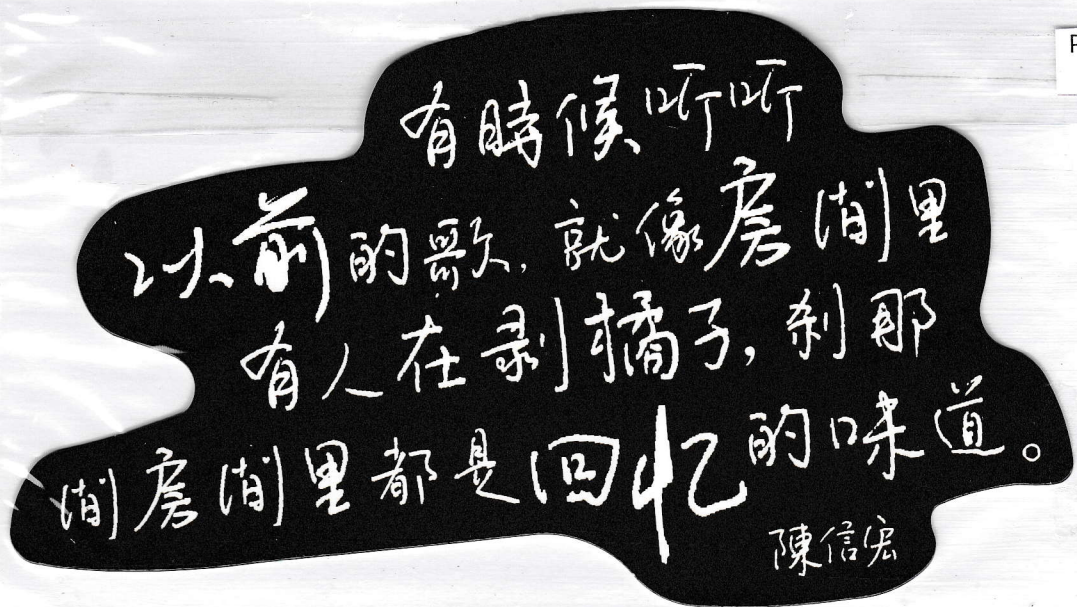 有時候听听
以前的歌，就像房間里
有人在剥橘子，刹那
間房間里都是回忆的味道。
陳信宏
P